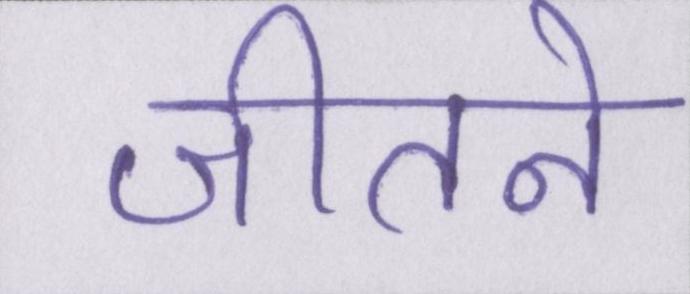 जीतने